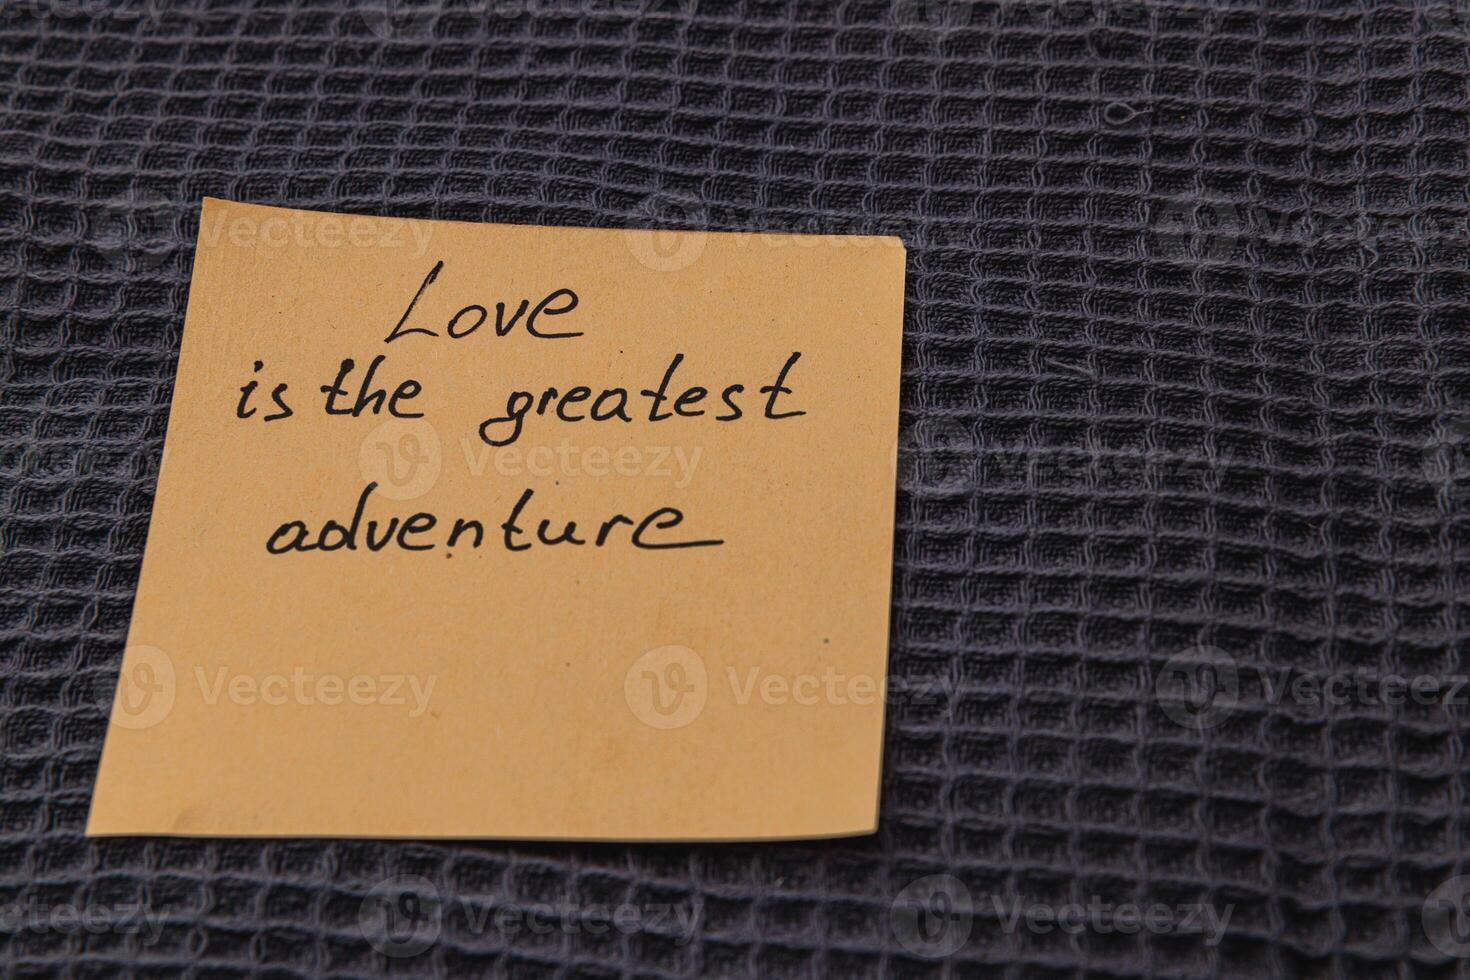 Love
is the greatest
adventure
Vecteezy